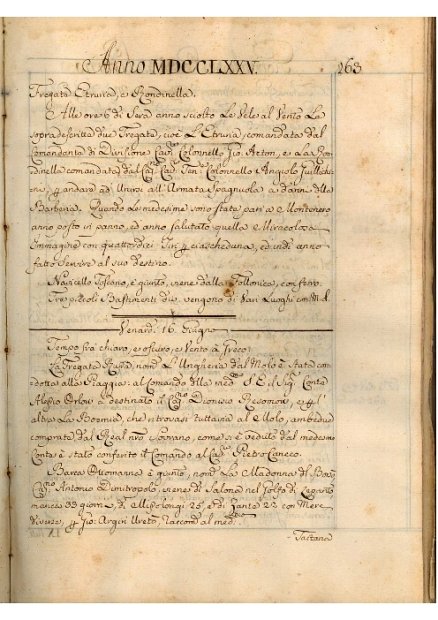 Anno MDCCLXXV. 263
Fregata Etruria, e Rondinella.
Alle ore 6 di Sera anno sciolto Le Vele al Vento Le
sopradescritte due Fregate, cioè L'Etruria, comandata dal
Comandante di Divisione Cav. Colonnello Gio. Acton, e La Ron-
dinella comandata dal Ten. Colonnello Angiolo
andare ad Unirsi all'Armata Spagnuola a danni della
Barberia. Quando Le medesime sono state pari a Montenero
anno posto in panno, ed anno salutato quella Miracolosa
Immagine con quattordici Tiri ciascheduna, ed indi anno
fatto Servire al suo destino.
Navicello Toscano, è giunto, viene dalla Follonica, con ferro.
Tre piccoli Bastimenti due vengono di vari Luoghi
Venerdì 16. Giugno
Tempo frà chiaro, e oscuro, e Vento à Greco.
La Fregata nom. L'Ungheria dal Molo è stata con-
dotta alla Piaggia: al Comando della med. S. E. il Sig. Conte
Alessio Orlow à destinato il Dionisio e
altra La Boemia, che ritrovasi tuttavia al Molo, ambedue
comprate dal Real nro Sovrano, come si è veduto dal medesimo
Conte è stato conferito il Comando al Pietro
Barca Ottomanna è giunto, nom. La Madonna di
Antonio Dimitropolo, viene da Salona nel Golfo di Lepanto
manca 33 giorni, di Missolongi 25, e di Zante 22 con Merc
Gio: Argin al med.
- Tartana